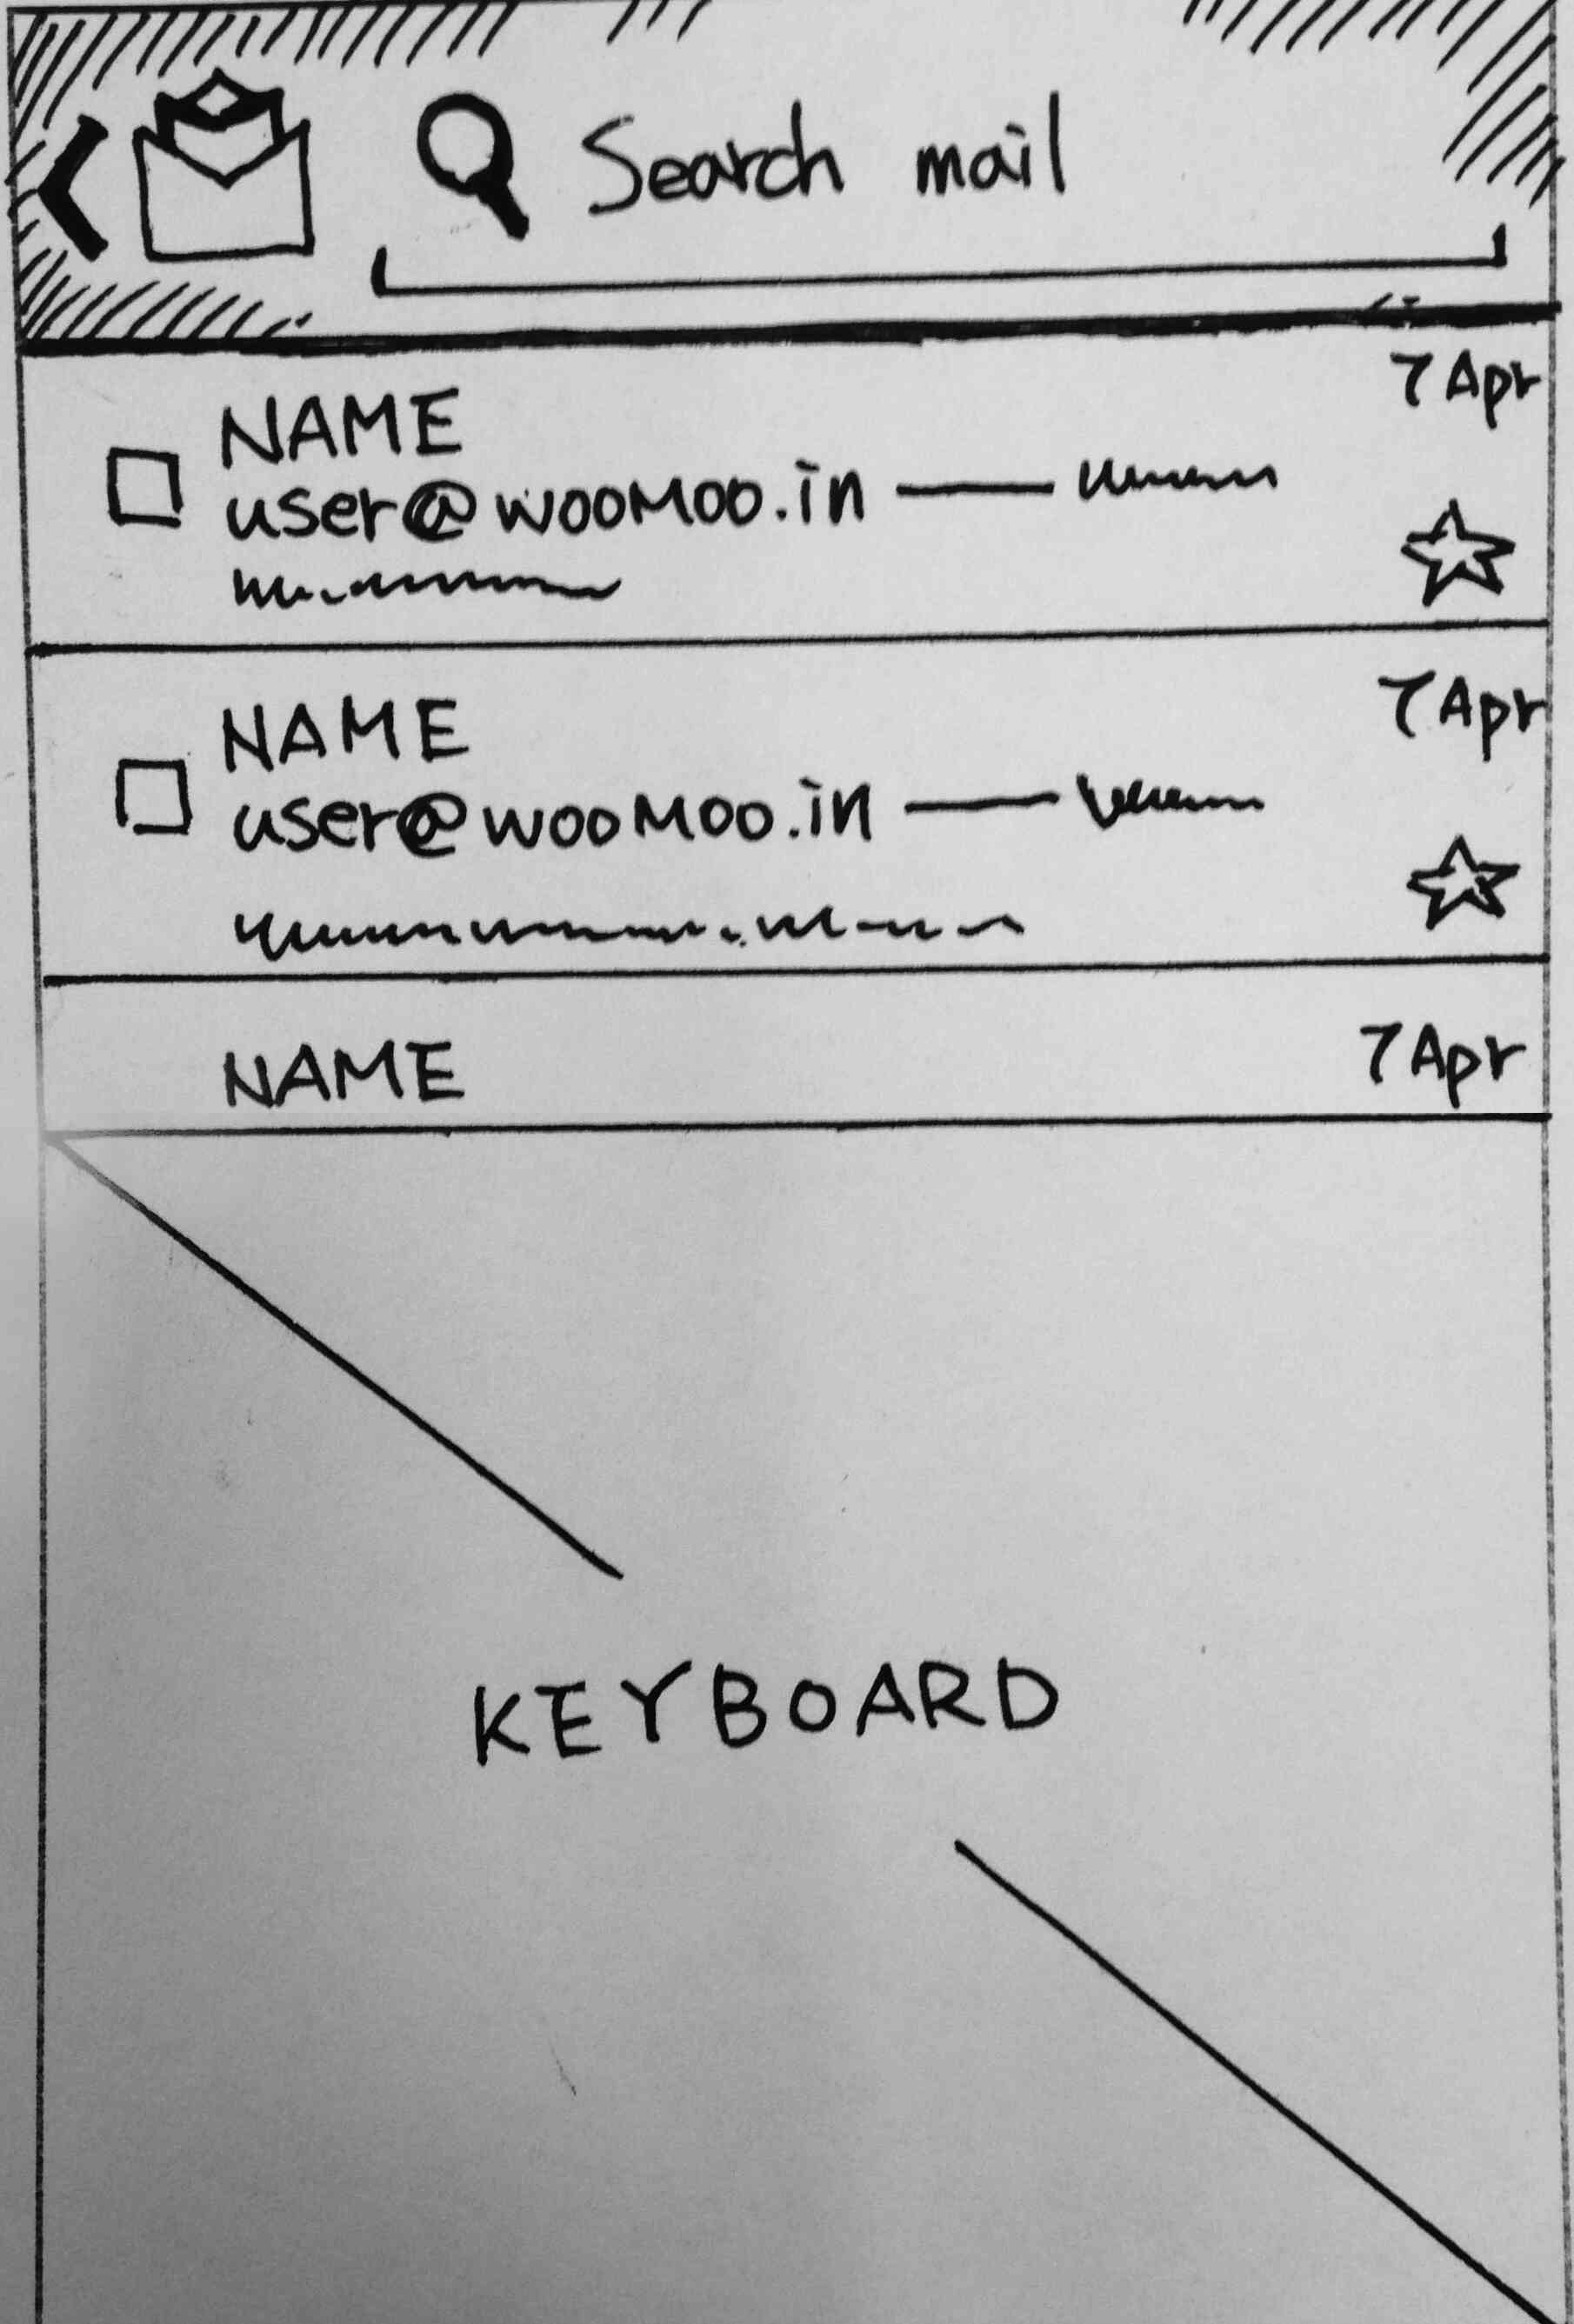 Search mail
7 Apr
NAME
user@wooMoo.in
7 Apr
NAME
user@wooMoo.in
NAME 7 Apr
KEYBOARD